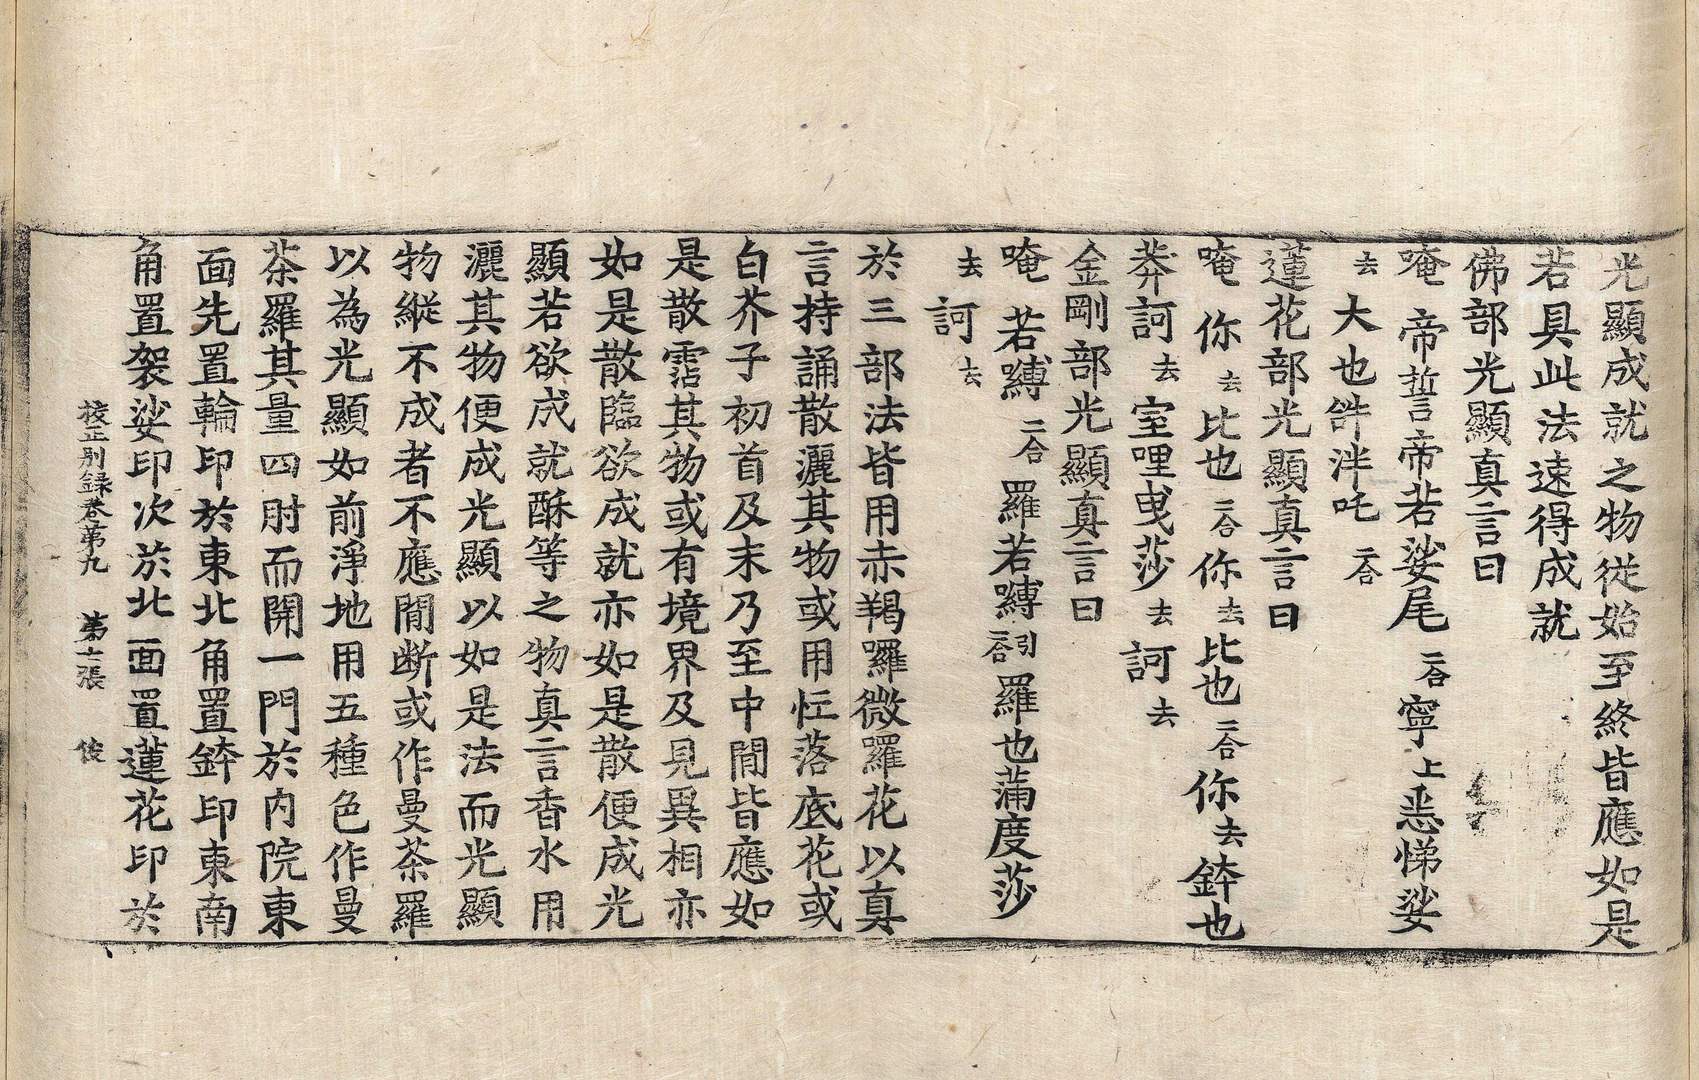 光顯成就之物從始至終皆應如是
若具此法速得成就
佛部光顯真言曰
唵 帝誓帝若娑尾二合寧上悉悌娑
去大也𤙖泮吒二合
蓮花部光顯真言曰
唵 你去比也二合你去比也二合你去鉢也
莽訶去室哩曳莎去訶去
金剛部光顯真言曰
唵 若嚩二合羅若嚩引二合羅也蒲度莎
去訶去
於三部法皆用赤羯囉微羅花以真
言持誦散灑其物或用忹落底花或
白芥子初首及末乃至中間皆應如
是散霑其物或有境界及見異相亦
如是散臨欲成就亦如是散便成光
顯若欲成就酥等之物真言香水用
灑其物便成光顯以如是法而光顯
物縱不成者不應閒断或作曼荼羅
以為光顯如前淨地用五種色作曼
荼羅其量四肘而開一門於内院東
面先置輪印於東北角置鉢印東南
角置袈裟印次於北面置蓮花印於
校正別録卷第九 第七張 俊